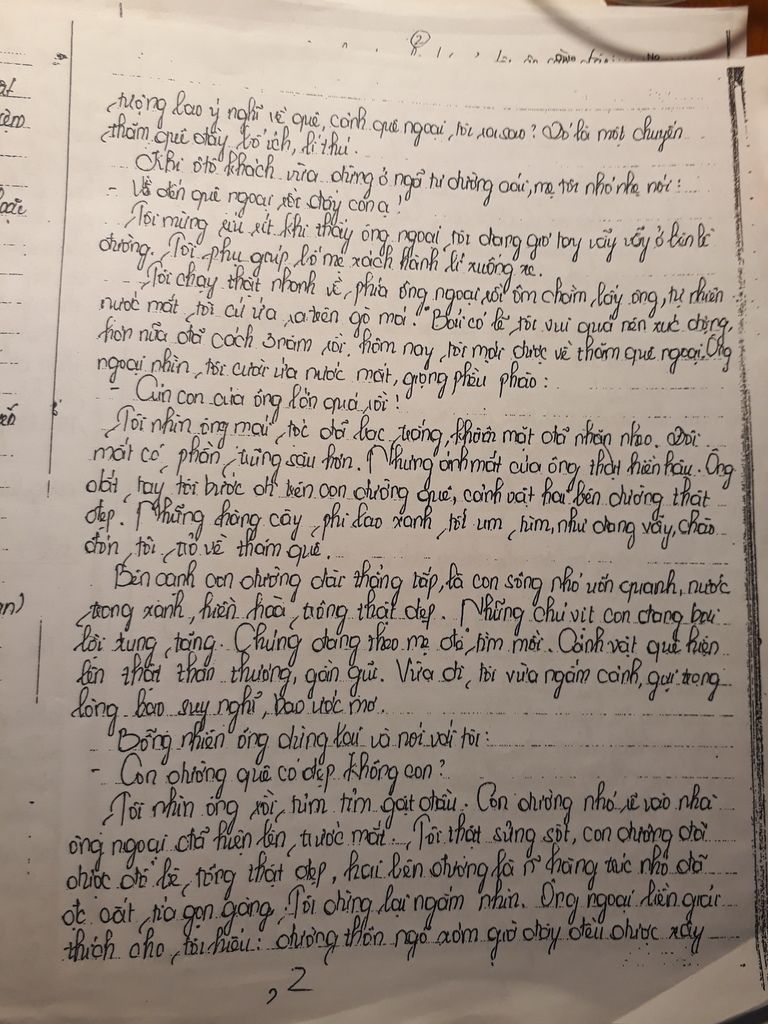 2
tượng bao ý nghĩ về quê, cảnh quê ngoại, tôi ra sao? Đó là một chuyến
thăm quê đầy bổ ích, lí thú.
Khi ôtô khách vừa dừng ở ngã tư đường cái, mẹ tôi nhỏ nhẹ nói:
- Về đến quê ngoại rồi đấy con ạ!
Tôi mừng ríu rít khi thấy ông ngoại tôi đang giơ tay vẫy vẫy ở bên lề
đường. Tôi phụ giúp bố mẹ xách hành lí xuống xe.
- Tôi chạy thật nhanh về phía ông ngoại rồi ôm chầm lấy ông, tự nhiên
nước mắt tôi cứ ứa ra trên gò má. Bởi có lẽ tôi vui quá nên xúc động,
hơn nữa đã cách 3 năm rồi, hôm nay tôi mới được về thăm quê ngoại. Ông
ngoại nhìn tôi cười ứa nước mắt, giọng phều phào:
- Cún con của ông lớn quá rồi!
Tôi nhìn ông mái tóc đã bạc trắng, khuôn mặt đã nhăn nheo. Đôi
mắt có phần trũng sâu hơn. Nhưng ánh mắt của ông thật hiền hậu. Ông
dắt tay tôi bước đi trên con đường quê, cảnh vật hai bên đường thật
đẹp. Những hàng cây phi lao xanh tốt um tùm, như đang vẫy, chào
đón tôi trở về thăm quê.
Bên cạnh con đường dài thẳng tắp, là con sông nhỏ uốn quanh, nước
trong xanh, hiền hoà, trông thật đẹp. Những chú vịt con đang bơi
lội tung tăng. Chúng đang theo mẹ để tìm mồi. Cảnh vật quê hiện
lên thật thân thương, gần gũi. Vừa đi, tôi vừa ngắm cảnh, gợi trong
lòng bao suy nghĩ, bao ước mơ.
Bỗng nhiên ông dừng lại và nói với tôi:
- Con đường quê có đẹp không con?
Tôi nhìn ông rồi tủm tỉm gật đầu. Con đường nhỏ rẽ vào nhà
ông ngoại đã hiện lên trước mắt. Tôi thật sửng sốt, con đường đã
được đổ bê tông thật đẹp, hai bên đường là hàng trúc nhỏ đã
đc cắt tỉa gọn gàng. Tôi dừng lại ngắm nhìn. Ông ngoại liền giải
thích cho tôi hiểu: đường thôn ngõ xóm giờ đây đều được xây
2